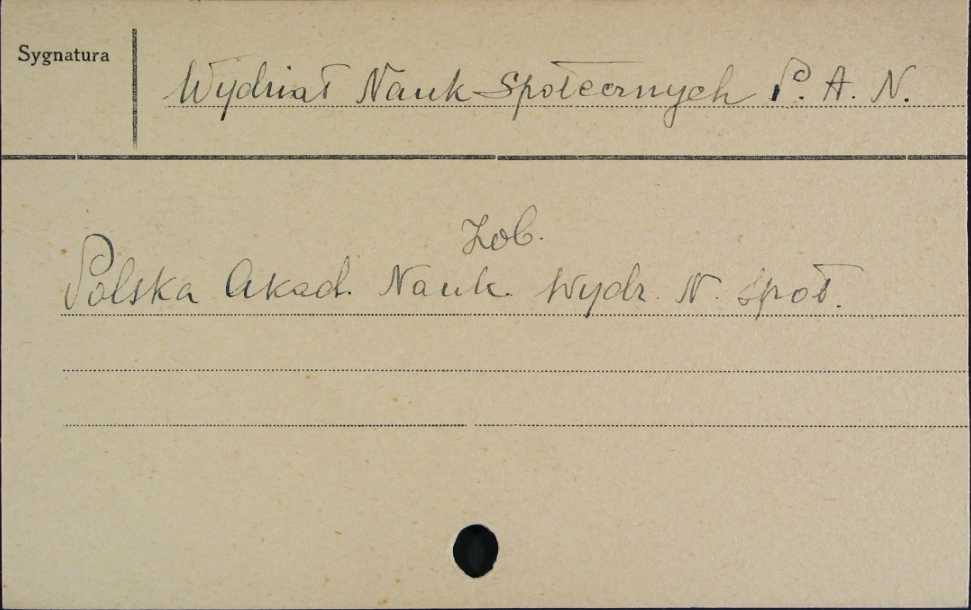 Sygnatura
Wydział Nauk Społecznych P. A. N.
Zob.
Polska Akad. Nauk. Wydz. N. Społ.